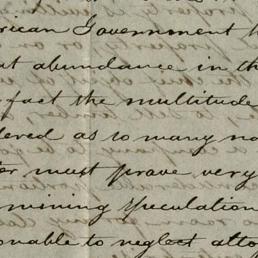 rican Government
at abundance in th
fact the multitude
dered as to many no
er must prove very
mining speculation
onable to neglect atto